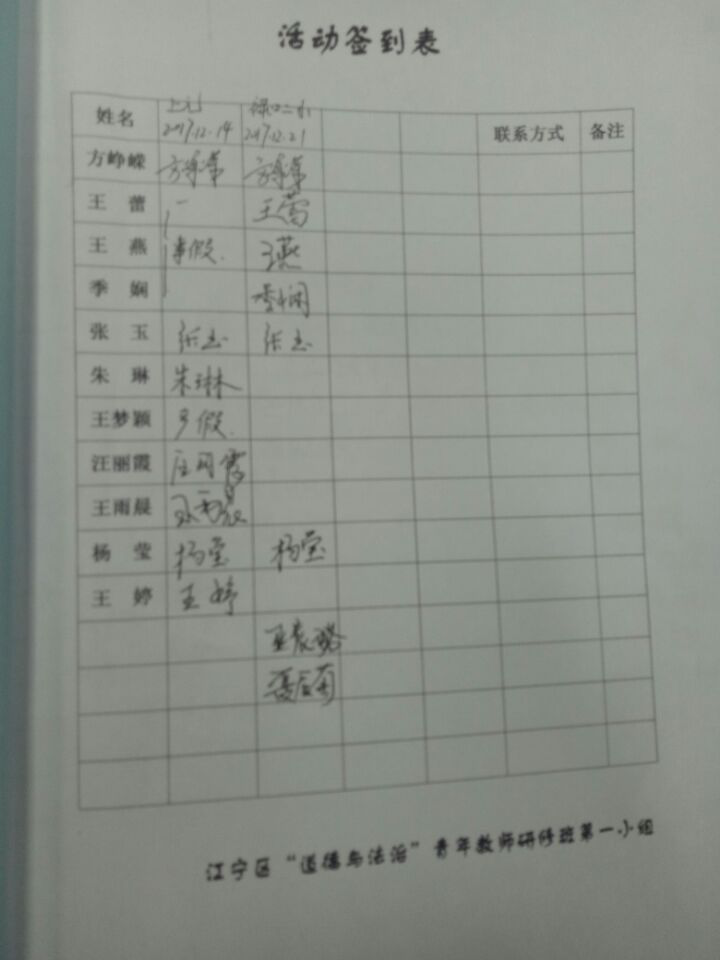 活动签到表
姓名 2017.12.14 禄口二小 2017.12.21 联系方式 备注
方峥嵘 方峥嵘 方峥嵘
王 蕾 王蕾
王 燕 事假. 王燕
季 娴 季娴
张 玉 张玉 张玉
朱 琳 朱琳
王梦颖 产假.
汪丽霞 汪丽霞
王雨晨 王雨晨
杨 莹 杨莹 杨莹
王 婷 王婷
江宁区“道德与法治”青年教师研修班第一小组